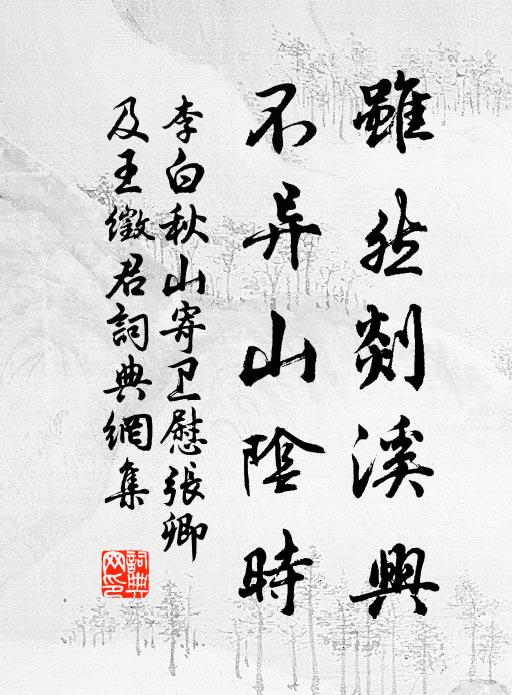 雖然剡溪興
不异山陰時
李白秋山寄卫慰張卿
及王徵君詞典網集
詞典
网印